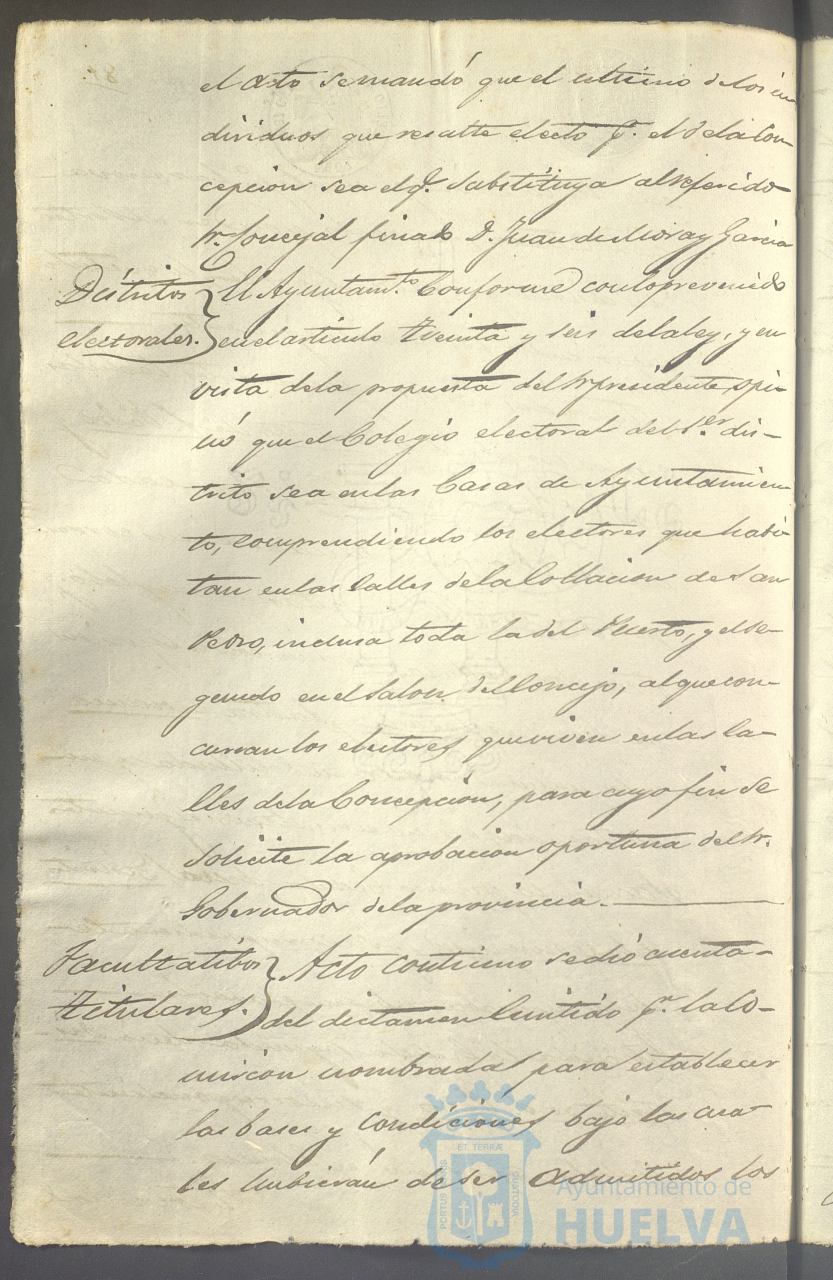 el acto se mandó que el ultimo de los in-
dividuos que resulte electo p.r el de la Con-
cepcion sea el q.e substituya al referido
Sr. Concejal finado D. Juan de Mora y Garcia
Distritos
electorales.
El Ayuntam.to Conforme con lo prevenido
en el articulo treinta y seis de la ley, y en
vista de la propuesta del Sr presidente, opi-
nó que el Colegio electoral del 1.er dis-
trito sea en las Casas de Ayuntamien-
to, comprendiendo los electores que habi-
tan en las Calles de la Collacion de San
Pedro, inclusa toda la del Puerto, y el se-
gundo en el Salon del Concejo, al que con-
curran los electores que viven en las ca-
lles de la Concepcion, para cuyo fin se
solicite la aprobacion oportuna del Sr.
Gobernador de la provincia.
Facultatibos
Titulares.
Acto continuo se dió cuenta
del dictamen emitido p.r la Co-
micion nombrada para establecer
las bases y condiciones bajo las cua-
les hubierán de ser admitidos los
PORTUS MARIS
ET TERRAE
CUSTODIA
Ayuntamiento de
HUELVA